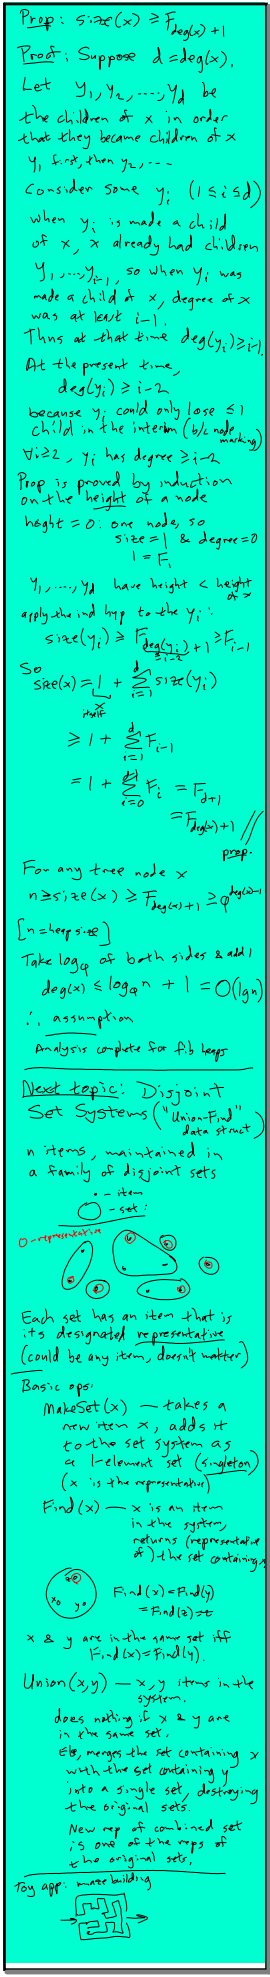 Prop: size(x) ≥ F_{deg(x)+1}
Proof: Suppose d = deg(x).
Let y₁, y₂, ...., y_d be
the children of x in order
that they became children of x
y₁ first, then y₂, ...
Consider some yᵢ (1 ≤ i ≤ d)
When yᵢ is made a child
of x, x already had children
y₁, ..., yᵢ₋₁, so when yᵢ was
made a child of x, degree of x
was at least i-1.
Thus at that time deg(yᵢ) ≥ i-1.
At the present time,
deg(yᵢ) ≥ i-2
because yᵢ could only lose ≤ 1
child in the interim (b/c node
marking)
∀i≥2, yᵢ has degree ≥ i-2
Prop is proved by induction
on the height of a node
height = 0: one node, so
size = 1 & degree = 0
1 = F₁
y₁, ...., y_d have height < height
of x
apply the ind hyp to the yᵢ:
size(yᵢ) ≥ F_{deg(yᵢ)+1} ≥ F_{i-1}
≥ i-2
So
size(x) = 1 + Σ_{i=1}^{d} size(yᵢ)
x
itself
≥ 1 + Σ_{i=1}^{d} F_{i-1}
= 1 + Σ_{i=0}^{d-1} Fᵢ = F_{d+1}
= F_{deg(x)+1} //
prop.
For any tree node x
n ≥ size(x) ≥ F_{deg(x)+1} ≥ φ^{deg(x)-1}
[n = heap size]
Take log_φ of both sides & add 1
deg(x) ≤ log_φ n + 1 = O(lg n)
∴ assumption
Analysis complete for fib heaps
Next topic: Disjoint
Set Systems ("Union-Find"
data struct)
n items, maintained in
a family of disjoint sets
• - item
○ - set:
○ - representative
Each set has an item that is
its designated representative
(could be any item, doesn't matter)
Basic ops:
MakeSet(x) — takes a
new item x, adds it
to the set system as
a 1-element set (singleton)
(x is the representative)
Find(x) — x is an item
in the system,
returns (representative
of) the set containing x
z
x y
Find(x) = Find(y)
= Find(z) = z
x & y are in the same set iff
Find(x) = Find(y).
Union(x,y) — x, y items in the
system.
does nothing if x & y are
in the same set.
Else, merges the set containing x
with the set containing y
into a single set, destroying
the original sets.
New rep of combined set
is one of the reps of
the original sets.
Toy app: maze building